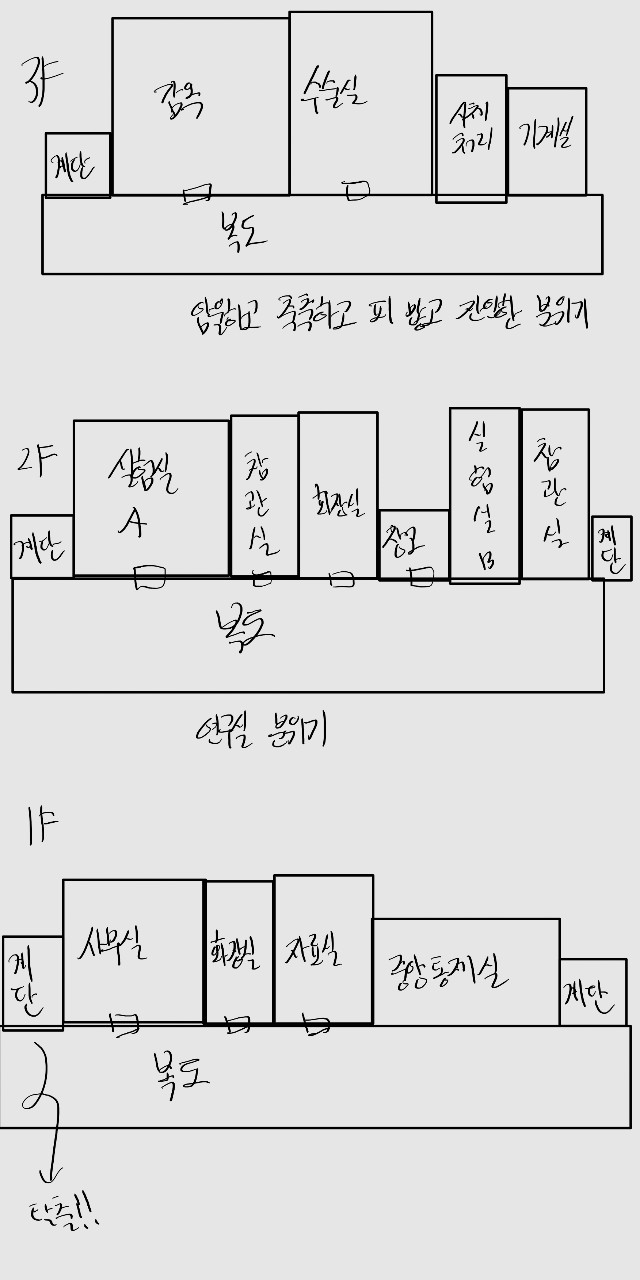 3F
감옥
수술실
시체
처리
기계실
계단
복도
음울하고 축축하고 피 많고 잔인한 분위기
2F
실험실
A
참
관
실
화장실
창고
실
험
실
B
참
관
실
계단
계
단
복도
연구실 분위기
1F
계
단
사무실
화장실
자료실
중앙통제실
계단
복도
탈출!!